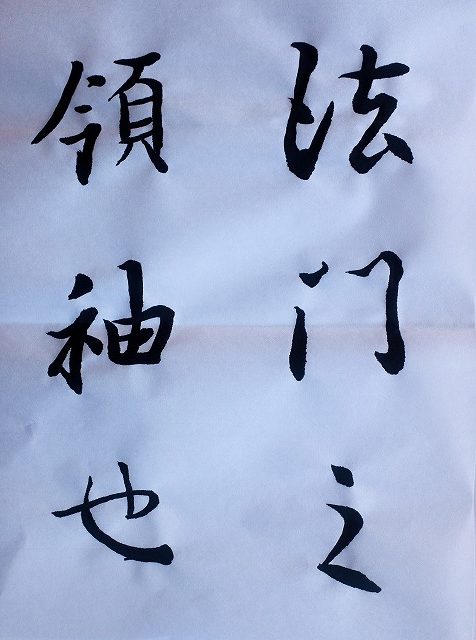 法门之
領袖也